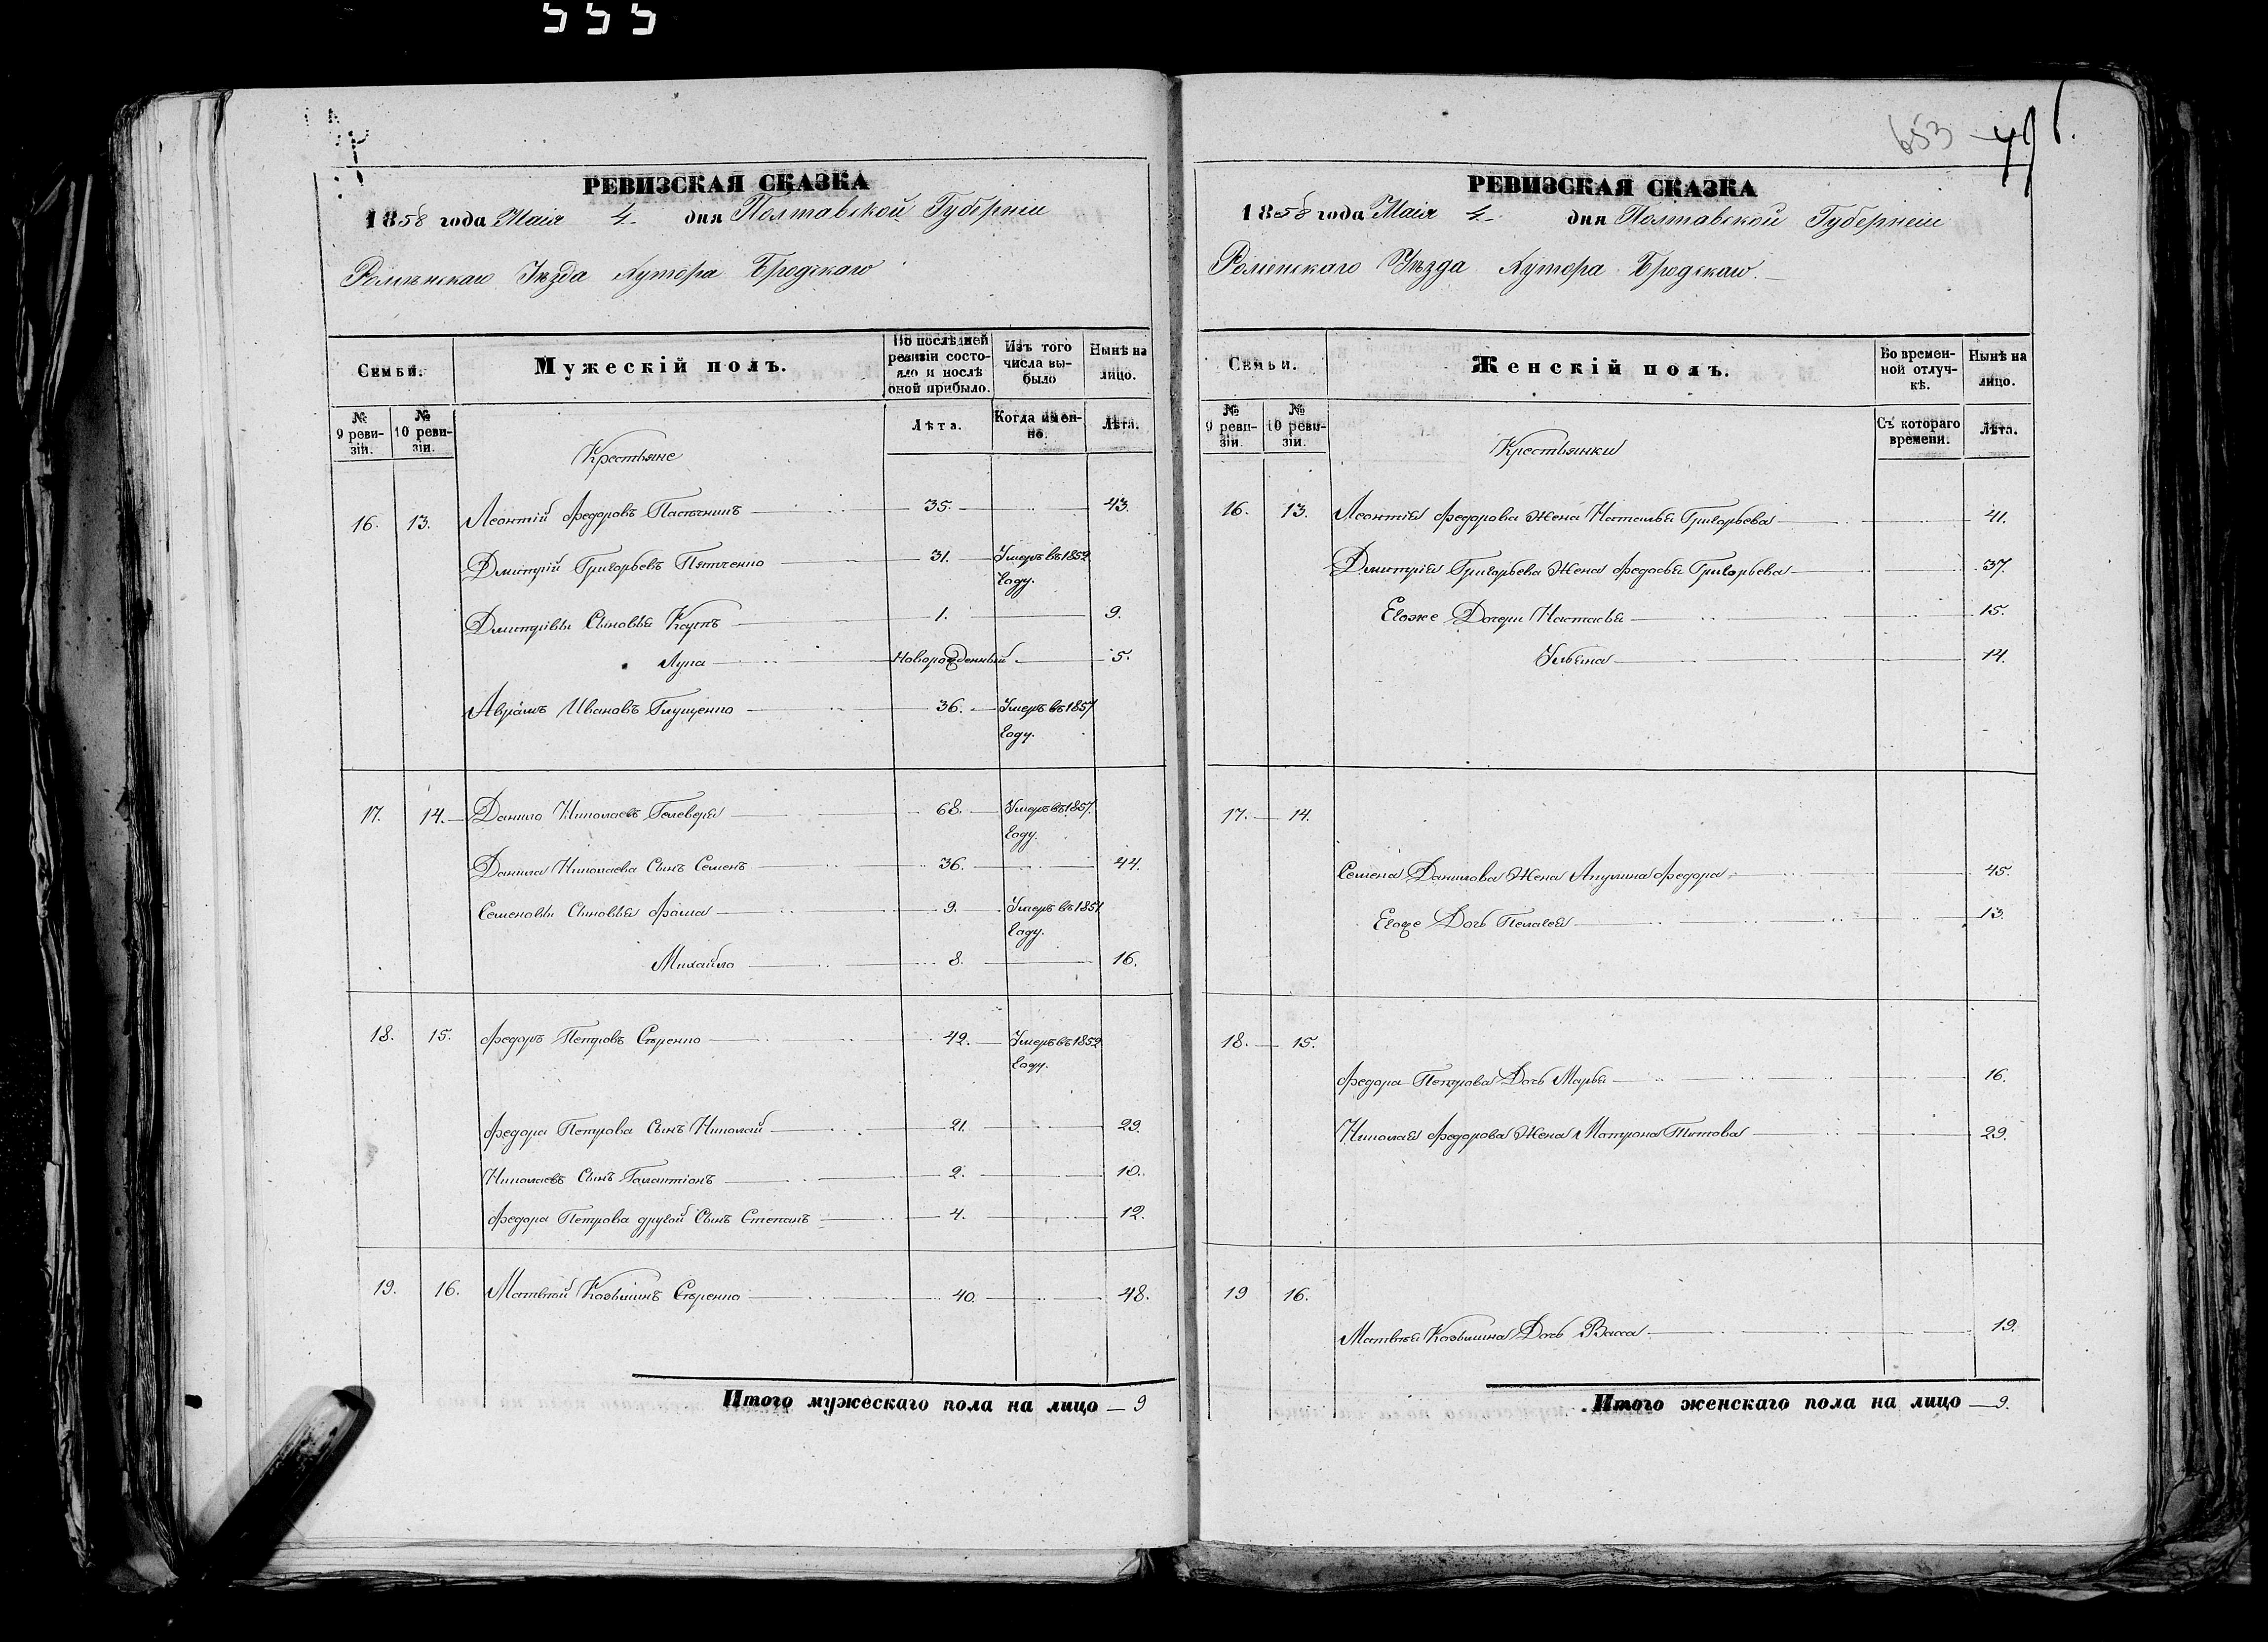 555
РЕВИЗСКАЯ СКАЗКА
1858 года Маія 4. дня Полтавской Губерніи
Роменскаго Уѣзда Хутора Бродскаго
Семьи.
Мужескій полъ.
По послѣдней ревизіи состояло и послѣ оной прибыло.
Изъ того числа выбыло
Нынѣ на лицо.
№ 9 ревизіи.
№ 10 ревизіи.
Лѣта.
Когда именно.
Лѣта.
Крестьяне
16. 13. Леонтій Федоровъ 35. 43.
Дмитрій Григорьевъ 31. Умеръ въ 1852
году.
Дмитріевы Сыновья Карпъ 1. 9.
Лука Новорожденный 5.
Аврамъ Ивановъ Глущенко 36. Умеръ въ 1857
году.
17. 14. Данило Николаевъ Гелеверя 68. Умеръ въ 1857.
году.
Данила Николаева Сынъ Семенъ 36. 44.
Семеновы Сыновья Фома 9. Умеръ въ 1851
году.
Михайло 8. 16.
18. 15. Федоръ Петровъ Сѣренко 42. Умеръ въ 1852
году.
Федора Петрова Сынъ Николай 21. 29.
Николаевъ Сынъ Галактіонъ 2. 10.
Федора Петрова другой Сынъ Степанъ 4. 12.
19. 16. Матвѣй Козьминъ Сѣренко 40. 48.
Итого мужескаго пола на лицо — 9
653
РЕВИЗСКАЯ СКАЗКА
1858 года Маія 4. дня Полтавской Губерніи
Роменскаго Уѣзда Хутора Бродскаго.
Семьи.
Женскій полъ.
Во временной отлучкѣ.
Нынѣ на лицо.
№ 9 ревизіи.
№ 10 ревизіи.
Съ котораго времени.
Лѣта.
Крестьянки
16. 13. Леонтія Федорова Жена Наталья Григорьева 41.
Дмитрія Григорьева Жена Федосья Григорьева 37.
Егоже Дочери Настасья 15.
Ульяна 14.
17. 14.
Семена Данилова Жена Акулина Федора 45.
Егоже Дочь Пелагея 13.
18. 15.
Федора Петрова Дочь Марья 16.
Николая Федорова Жена Матрона Титова 29.
19 16.
Матвѣя Козьмина Дочь Васса 19.
Итого женскаго пола на лицо — 9.